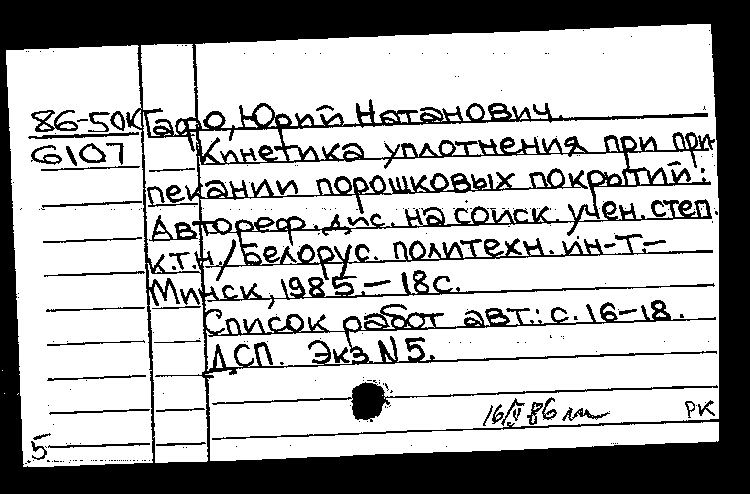 86-50К Гафо, Юрий Натанович.
6107 Кинетика уплотнения при при-
пекании порошковых покрытий:
Автореф. дис. на соиск. учен. степ.
к.т.н./ Белорус. политехн. ин-т.-
Минск, 1985.- 18с.
Список работ авт.: с. 16-18.
ДСП. Экз N5.
16/V 86 РК
5